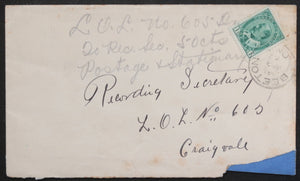 L.O.L. No. 605
To Rec. Sec. 50cts
Postage & Stationary
BEETON
Recording Secretary
L.O.L. No 605
Craigvale